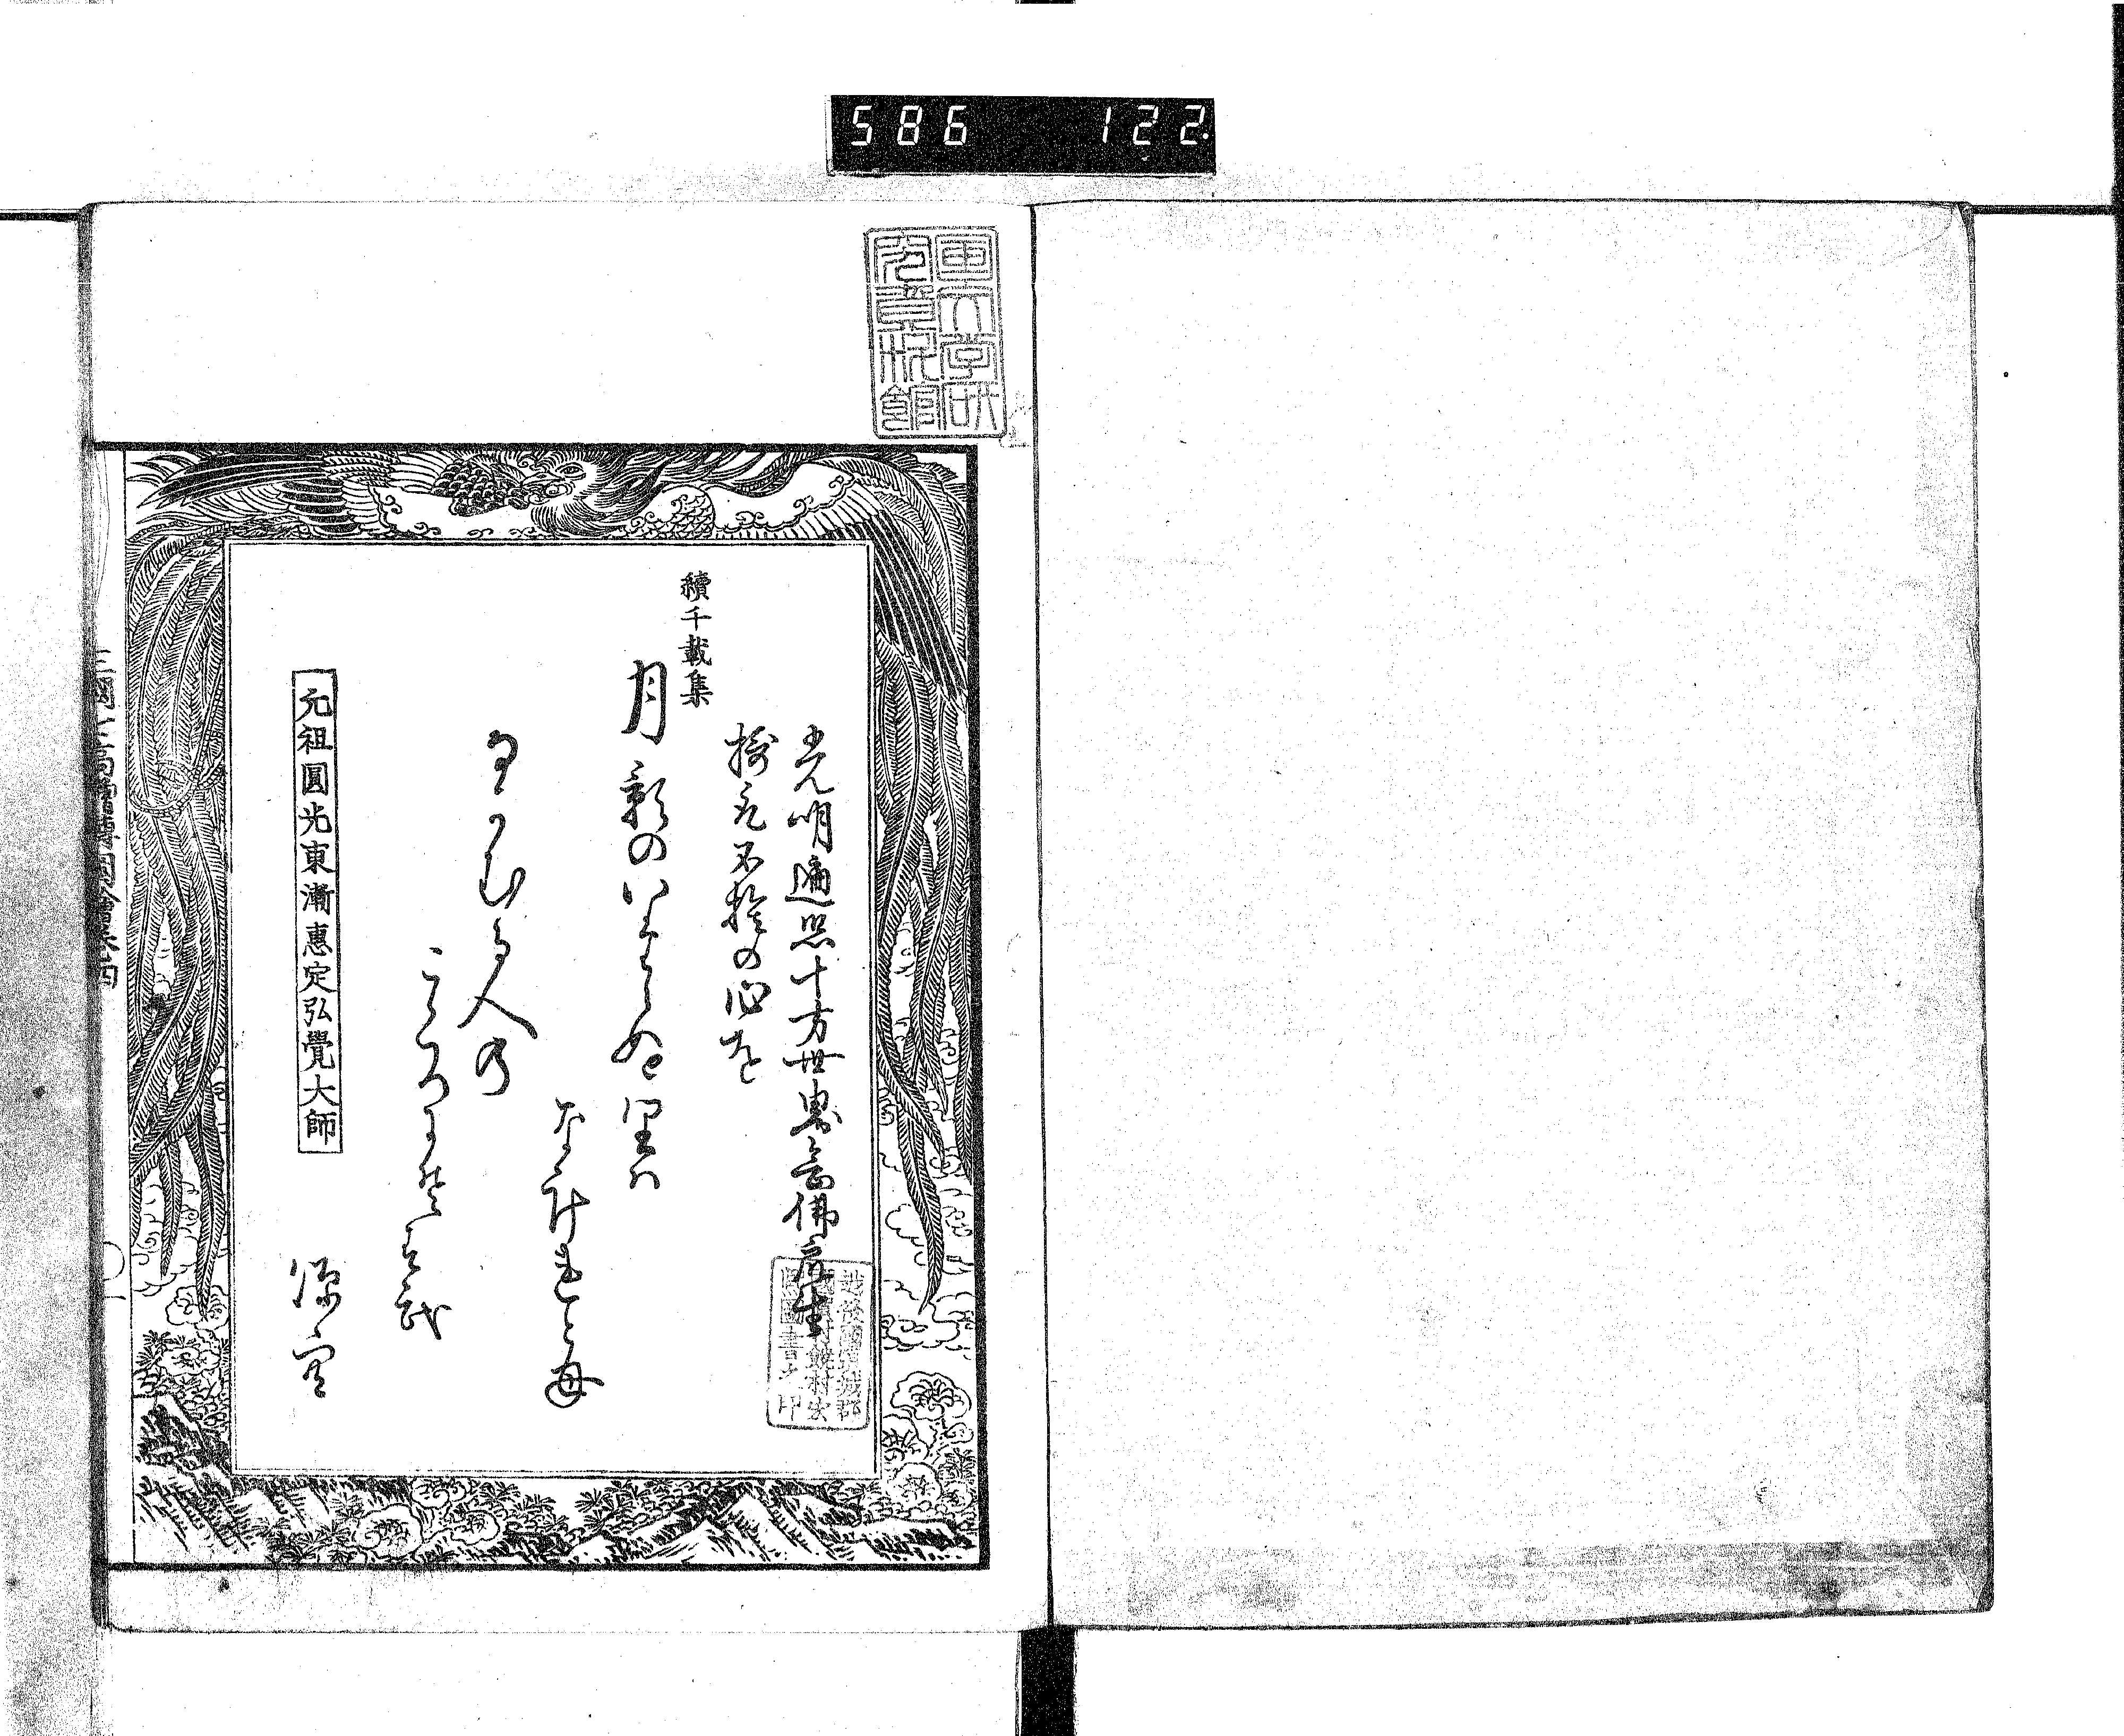 586 122
續千載集
光明遍照十方世界念佛衆生
攝取不捨の心を
月影のいたらぬ里は
なけれとも
なかむる人の
こゝろにそすむ
元祖圓光東漸惠定弘覺大師
源空
三國七高僧傳圖會卷四